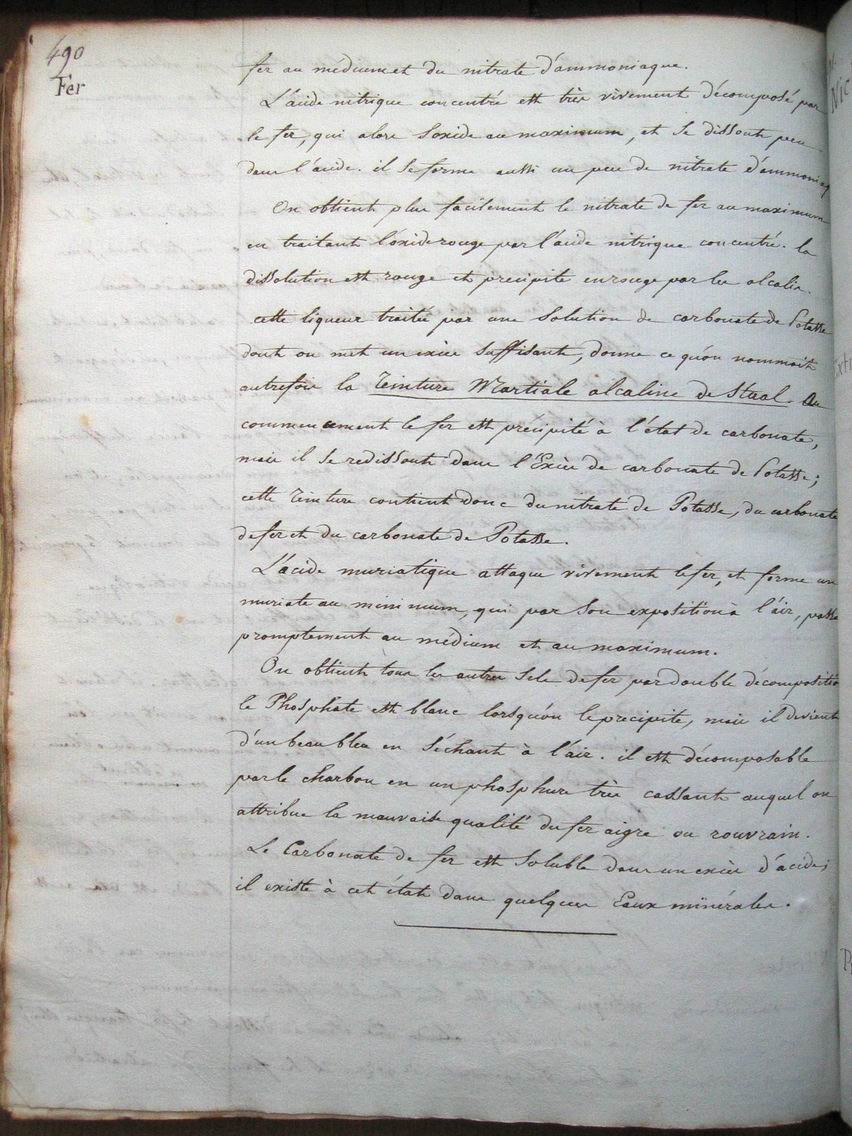 490
Fer
fer au medium et du nitrate d'ammoniaque.
L'acide nitrique concentré est très vivement décomposé par
le fer, qui alors s'oxide au maximum, et se dissout peu
dans l'acide. il se forme aussi un peu de nitrate d'ammoniaq
On obtient plus facilement le nitrate de fer au maximum
en traitant l'oxide rouge par l'acide nitrique concentré. la
dissolution est rouge et precipite en rouge par les alcalis.
cette liqueur traitée par une solution de carbonate de Potasse
dont on met un excès suffisant, donne ce qu'on nommait
autrefois la Teinture Martiale alcaline de Staal. Au
commencement le fer est précipité à l'état de carbonate,
mais il se redissout dans l'Excès de carbonate de Potasse;
cette Teinture contient donc du nitrate de Potasse, du carbonate
de fer et du carbonate de Potasse.
L'acide muriatique attaque vivement le fer, et forme un
muriate au minimum, qui par son exposition à l'air, passe
promptement au medium et au maximum.
On obtient tous les autres Sels de fer par double décomposition
le Phosphate est blanc lorsqu'on le precipite, mais il devient
d'un beau bleu en séchant à l'air. il est décomposable
par le charbon en un phosphure très cassant auquel on
attribue la mauvaise qualité du fer aigre ou rouvrain.
Le Carbonate de fer est soluble dans un excès d'acide;
il existe à cet état dans quelques Eaux minérales.
Nic